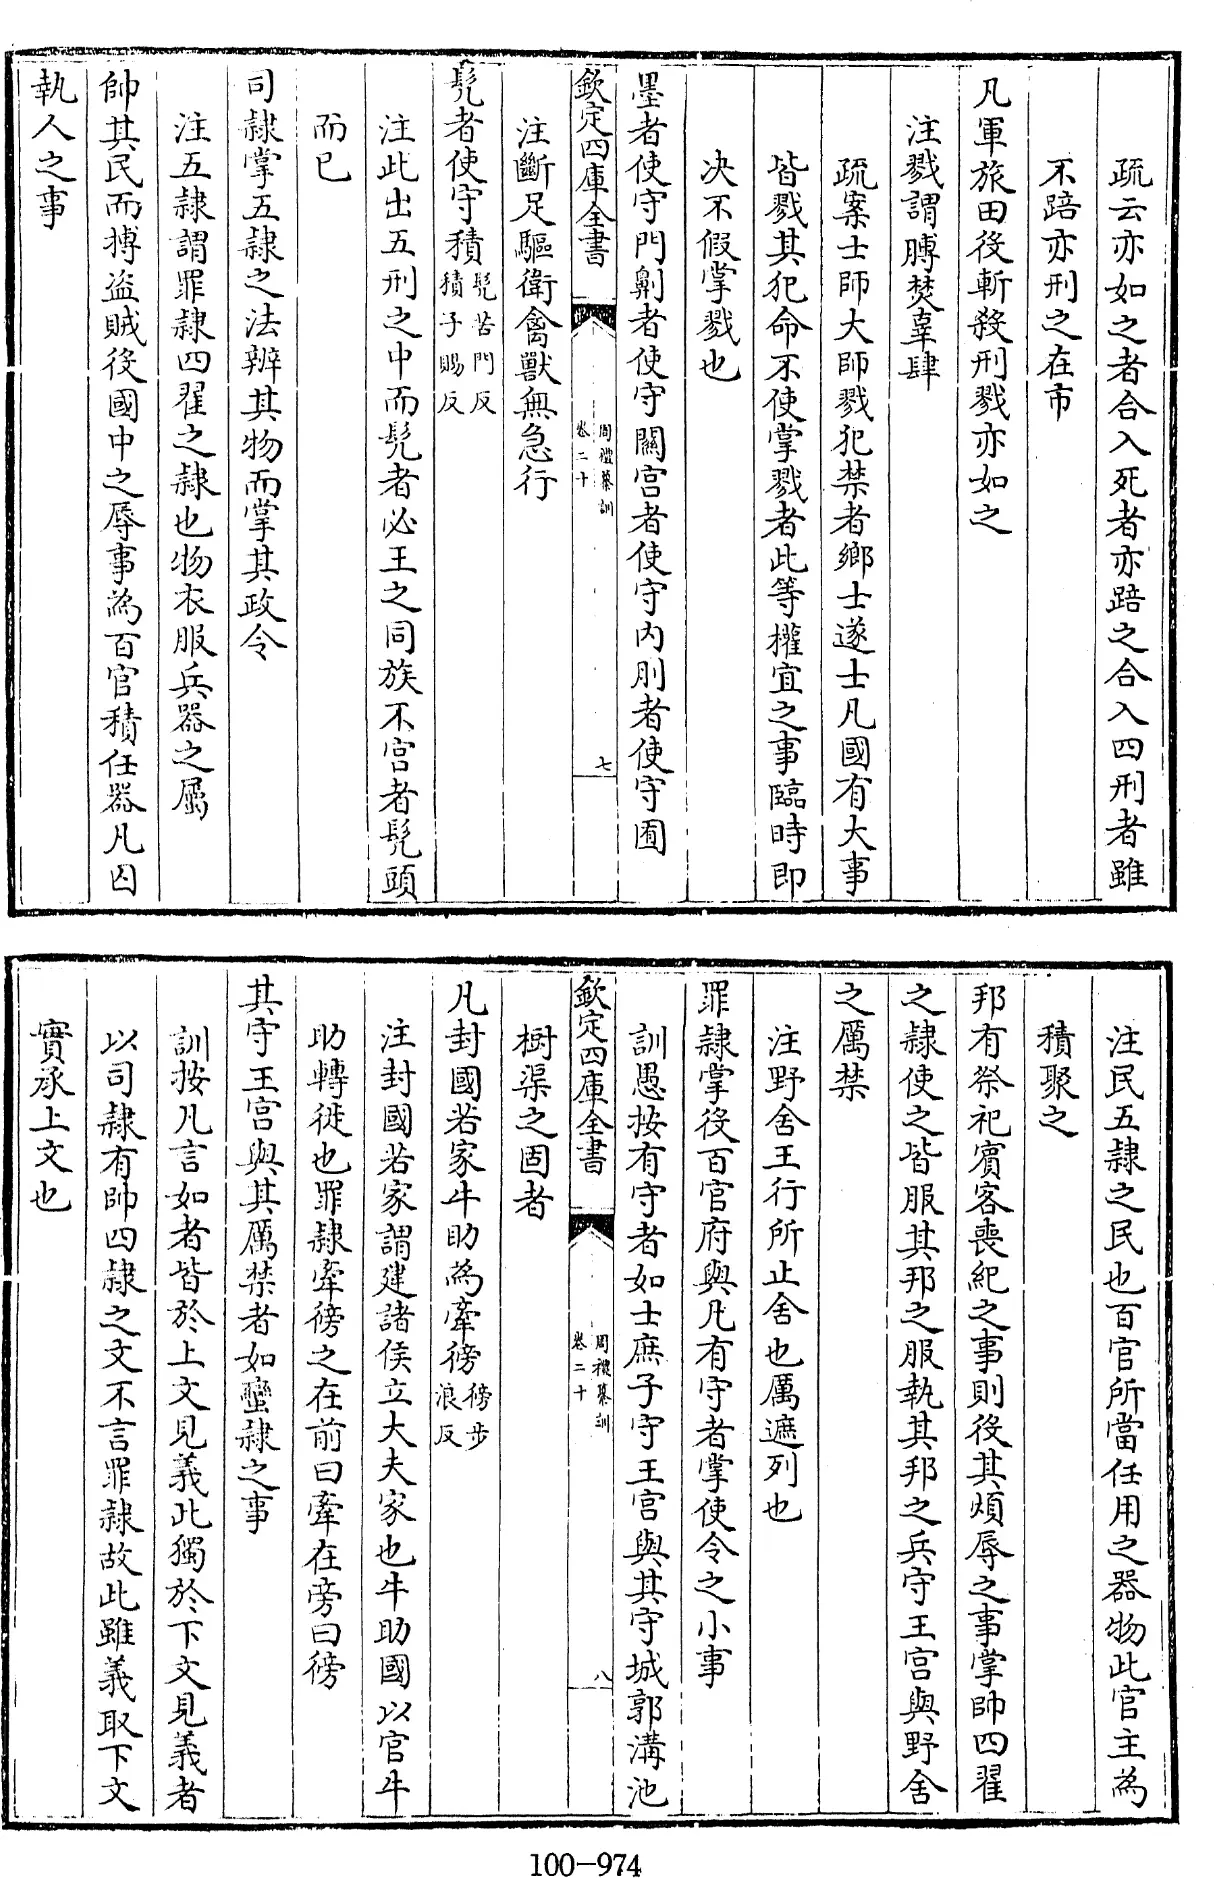 疏云亦如之者合入死者亦踣之合入四刑者雖
不踣亦刑之在市
凡軍旅田役斬殺刑戮亦如之
注戮謂膊焚辜肆
疏案士師大師戮犯禁者鄉士遂士凡國有大事
皆戮其犯命不使掌戮者此等權宜之事臨時即
決不假掌戮也
墨者使守門劓者使守關宫者使守内刖者使守囿
欽定四庫全書
周禮纂訓
卷二十
七
注斷足驅衛禽獸無急行
髠者使守積髠苦門反
積子賜反
注此出五刑之中而髠者必王之同族不宫者髠頭
而已
司隷掌五隷之法辨其物而掌其政令
注五隷謂罪隷四翟之隷也物衣服兵器之屬
帥其民而搏盜賊役國中之辱事為百官積任器凡囚
執人之事
注民五隷之民也百官所當任用之器物此官主為
積聚之
邦有祭祀賓客喪紀之事則役其煩辱之事掌帥四翟
之隷使之皆服其邦之服執其邦之兵守王宫與野舍
之厲禁
注野舍王行所止舍也厲遮列也
罪隷掌役百官府與凡有守者掌使令之小事
訓愚按有守者如士庶子守王宫與其守城郭溝池
欽定四庫全書
周禮纂訓
卷二十
八
樹渠之固者
凡封國若家牛助為牽徬徬步
浪反
注封國若家謂建諸侯立大夫家也牛助國以官牛
助轉徙也罪隷牽徬之在前曰牽在旁曰徬
其守王宫與其厲禁者如蠻隷之事
訓按凡言如者皆於上文見義此獨於下文見義者
以司隷有帥四隷之文不言罪隷故此雖義取下文
實承上文也
100-974